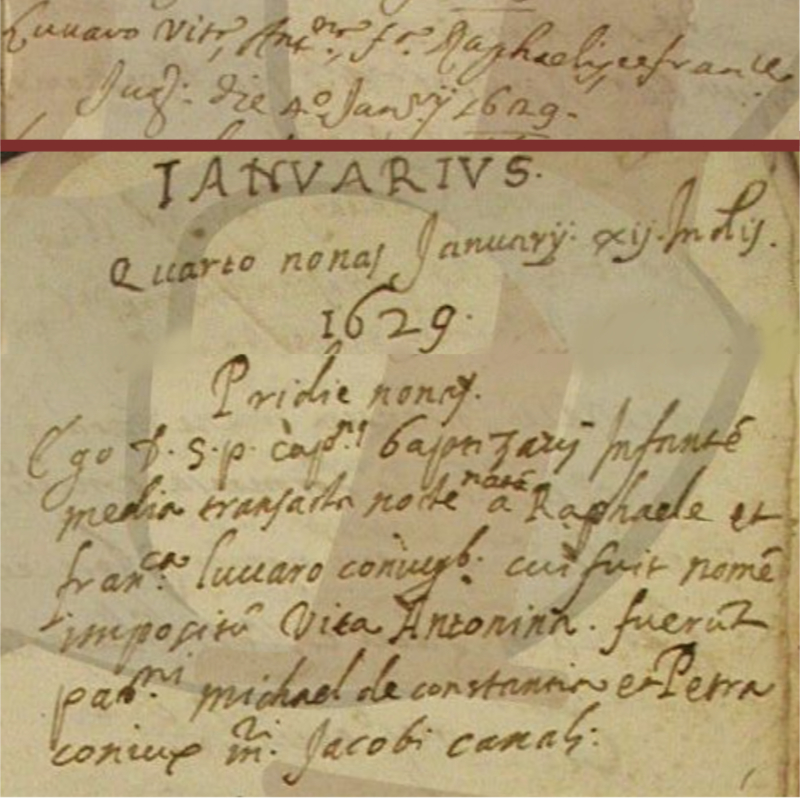 Luuaro Vita, Ant.na f.a Raphaelis, et franc.ce
Jug: die 4.o Januarij 1629.
IANVARIVS.
Quarto nonas Januarij: xij. Indis.
1629.
Pridie nonas.
Ego D. S. p. cap.nus baptizavi Infantē
media transacta nocte natā a Raphaele et
fran.ca luuaro coniugb: cui fuit nomē
impositū Vita Antonina. fuerūt
pat.ni michael de constantia et Petra
coniux m.ri Jacobi canali: